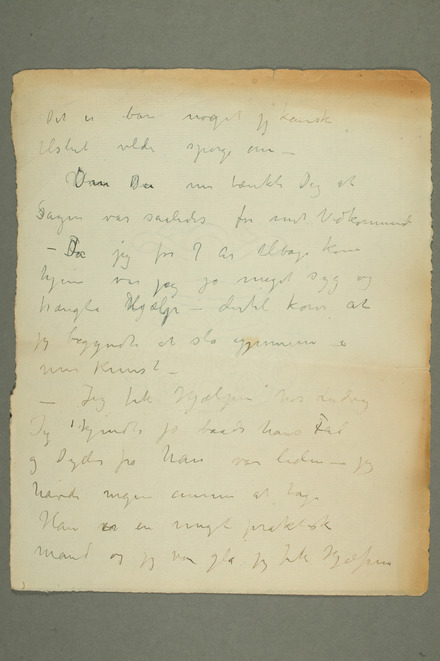 Det er bare noget jeg kanske
tilslut vilde spørge om –
Da nu tænkte Dig at
Sagen var saaledes for mit Vedkommende
– Da jeg for 7 Ar tilbage kom
hjem var jeg jo meget syg og
trængte Hjælp – dertil kom at
jeg begyndte at slå igjennem
min Kunst –
– Jeg fik "Hjælpen" hos
Jeg kjendte jo baade hans
og fra han var liden – jeg
havde ingen at
Han er en meget praktisk
mand og jeg var gla jeg fik Hjælpen